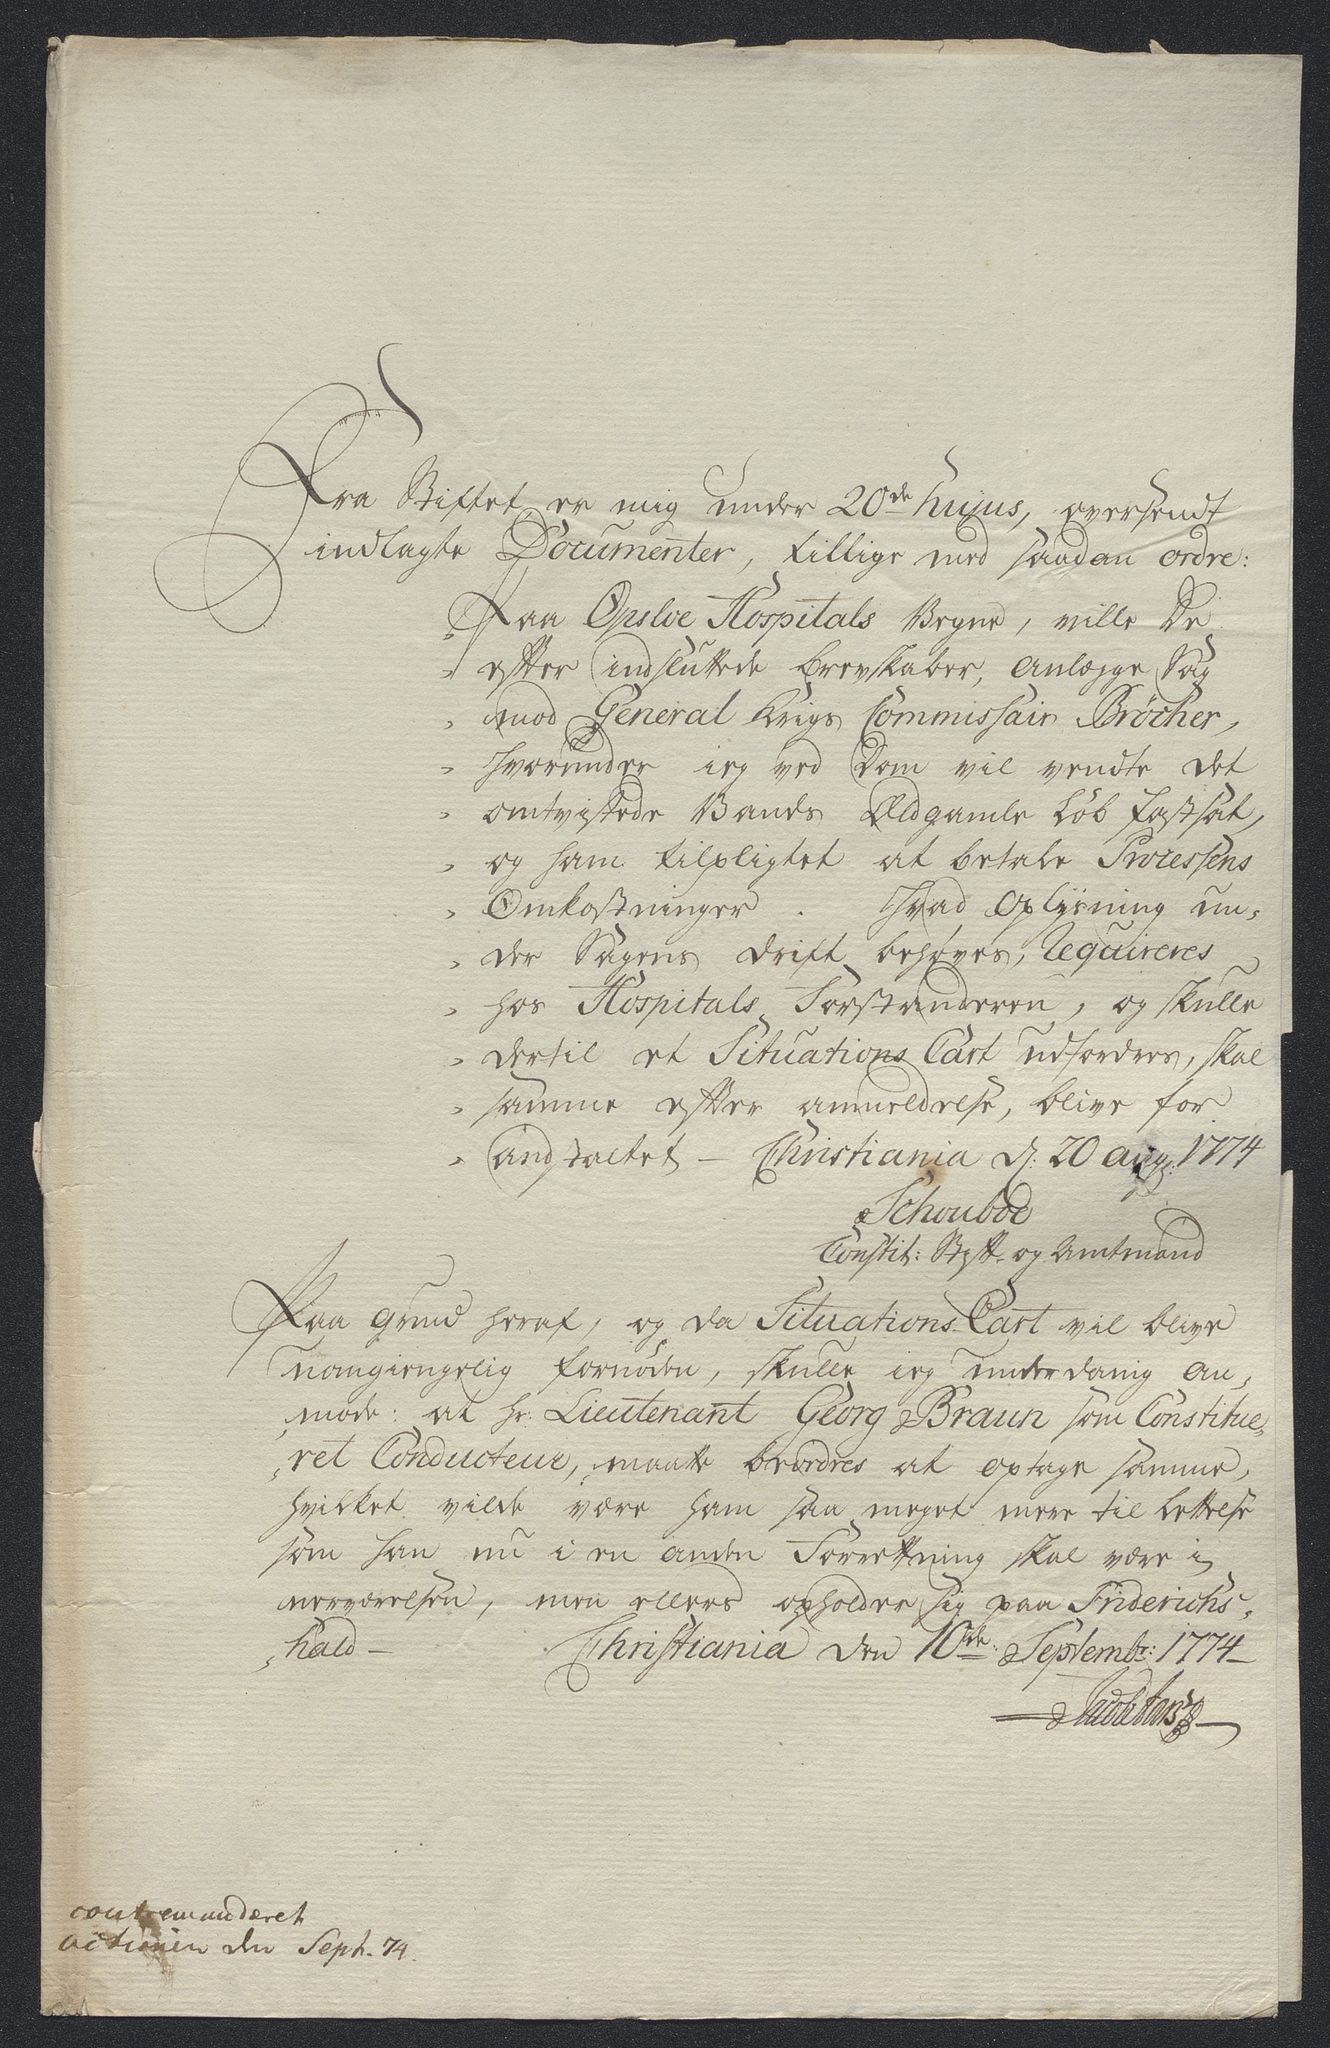 Fra Stiftet er mig under 20de hujus, oversendt
indlagte Documenter, tillige med saadan ordre:
Paa Opsloe Hospitals Vegne, ville De
" efter indsluttede brevskaber, anlægge Sag
" mod General Krigs Commissair Bröcher,
" hvorunder ieg ved Dom vil vendte det
" omtvistede Vands Ældgamle Löb fastsat,
" og ham tilpligtet at betale Processens
" Omkostninger. Hvad Oplysning un,
" der Sagens drift behøves, Requireres
" hos Hospitals Forstanderen, og skulle
" dertil et Situations Cart udfordres, skal
" samme efter anmeldelse, blive for
" andstaltet – Christiania d: 20 aug: 1774
Schouboe
Constit: Stift- og Amtmand
Paa Grund heraf, og da Situations-Cart vil blive
uomgiengelig fornöden, skulle ieg underdanig an,
mode: at Hr: Lieutenant Georg Braun som Constitue,
,ret Conducteur, maatte beordres at optage samme,
hvilket vilde være ham saa meget mere til Lettelse
som han nu i en anden Forrettning skal være i
nerværelsen, men ellers opholder sig paa Friderichs,
,hald – Christiania den 10de Septembr: 1774 –
contremanderet
actionen den Sept. 74.